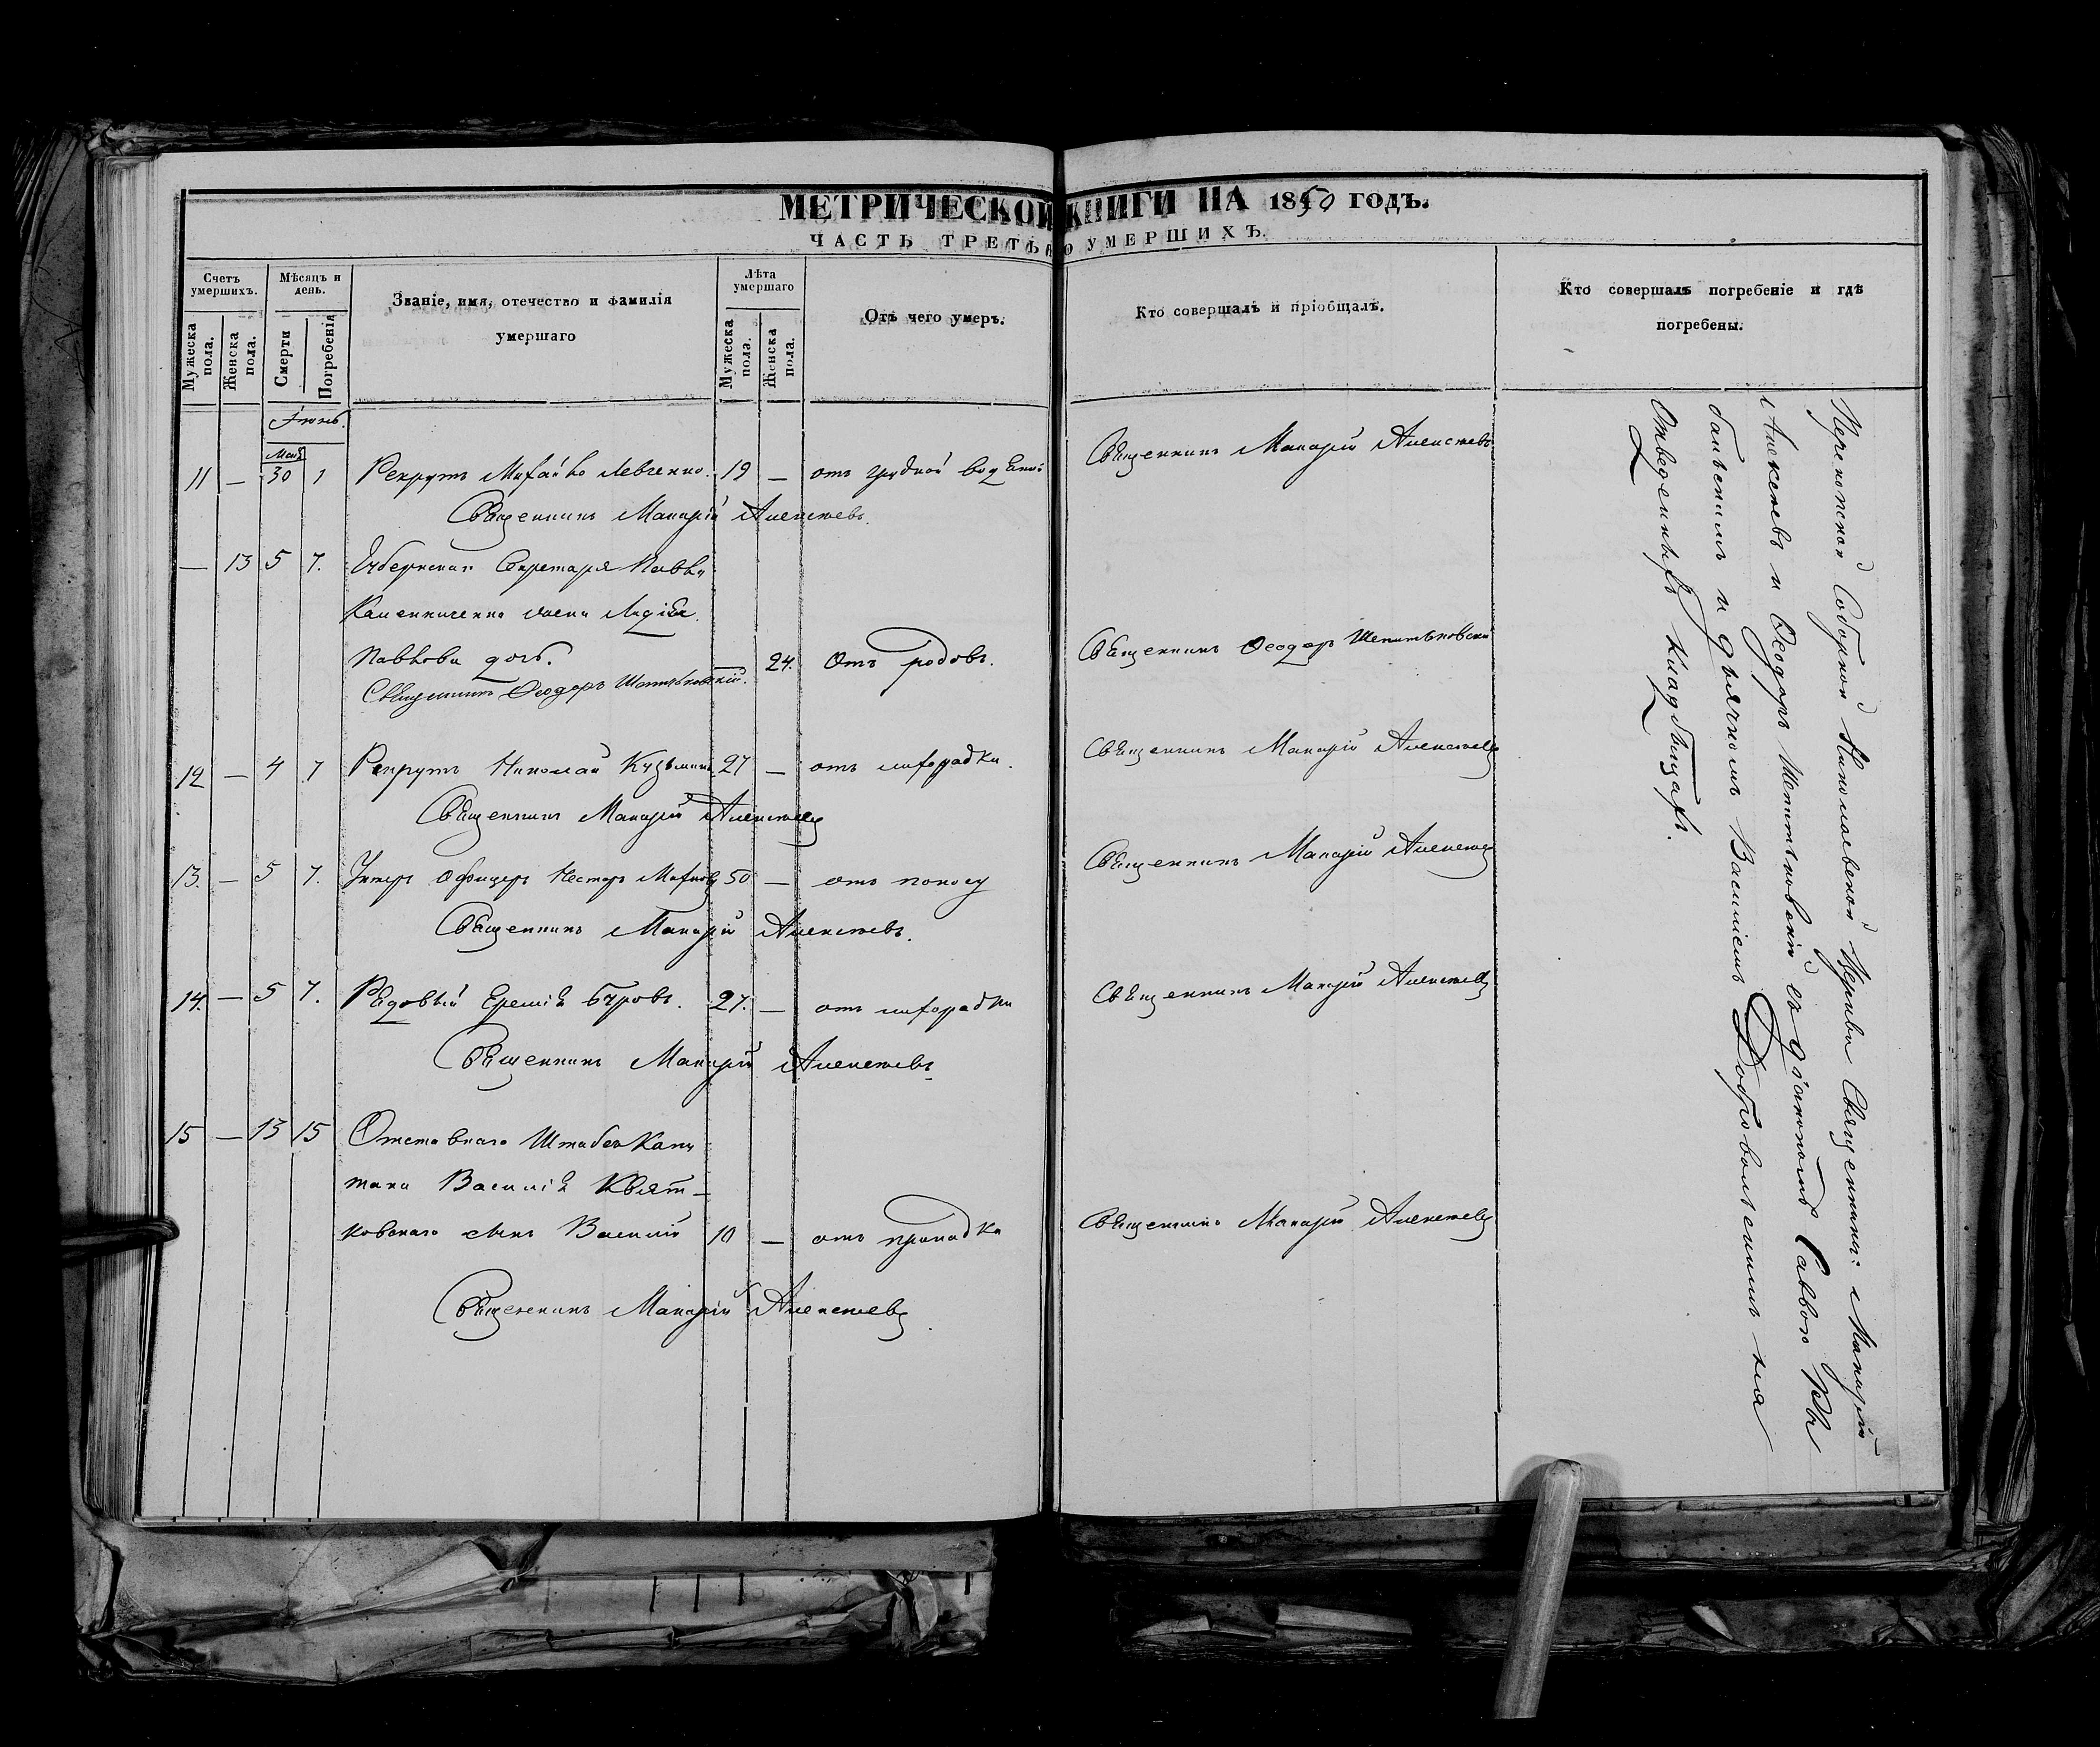 МЕТРИЧЕСКОЙ КНИГИ НА 1850 ГОДЪ.
ЧАСТЬ ТРЕТЬЯ О УМЕРШИХЪ.
Счетъ умершихъ.
Мужеска пола.
Женска пола.
Мѣсяцъ и день.
Смерти
Погребенія
Званіе, имя, отечество и фамилія
умершаго
Лѣта умершаго
Мужеска пола.
Женска пола.
Отъ чего умеръ.
Кто совершалъ и пріобщалъ.
Кто совершалъ погребеніе и гдѣ
погребены.
Іюнь.
Мая
11 — 30 1 Рекрутъ Михайло Левченко. 19 — отъ грудной водяной Священникъ Макарій Алексѣевъ
Священникъ Макарій Алексѣевъ.
— 13 5 7. Губернскаго Секретаря Павла
жена Лидія
Павлова дочь. — 24. Отъ родовъ. Священникъ Ѳеодоръ
Священникъ Ѳеодоръ
12 — 4 7 Рекрутъ Николай Кузьминъ 27 — отъ лихорадки. Священникъ Макарій Алексѣевъ
Священникъ Макарій Алексѣевъ
13. — 5 7. Унтеръ Офицеръ Несторъ 50 — отъ поносу Священникъ Макарій Алексѣевъ
Священникъ Макарій Алексѣевъ.
14. — 5 7. Рядовый Еремій Буровъ. 27. — отъ лихорадки Священникъ Макарій Алексѣевъ
Священникъ Макарій Алексѣевъ.
15 — 13 15 Отставнаго Штабсъ Капи
тана Василія Квят—
ковскаго сынъ Василій 10 — отъ припадка Священникъ Макарій Алексѣевъ
Священникъ Макарій Алексѣевъ.
Перекопской Соборной Николаевской Церкви Священники: Макарій
Алексѣевъ и Ѳеодоръ съ діакономъ Саввою
и дьячкомъ Василіемъ Добровольскимъ на
Отведенныхъ кладбищахъ.